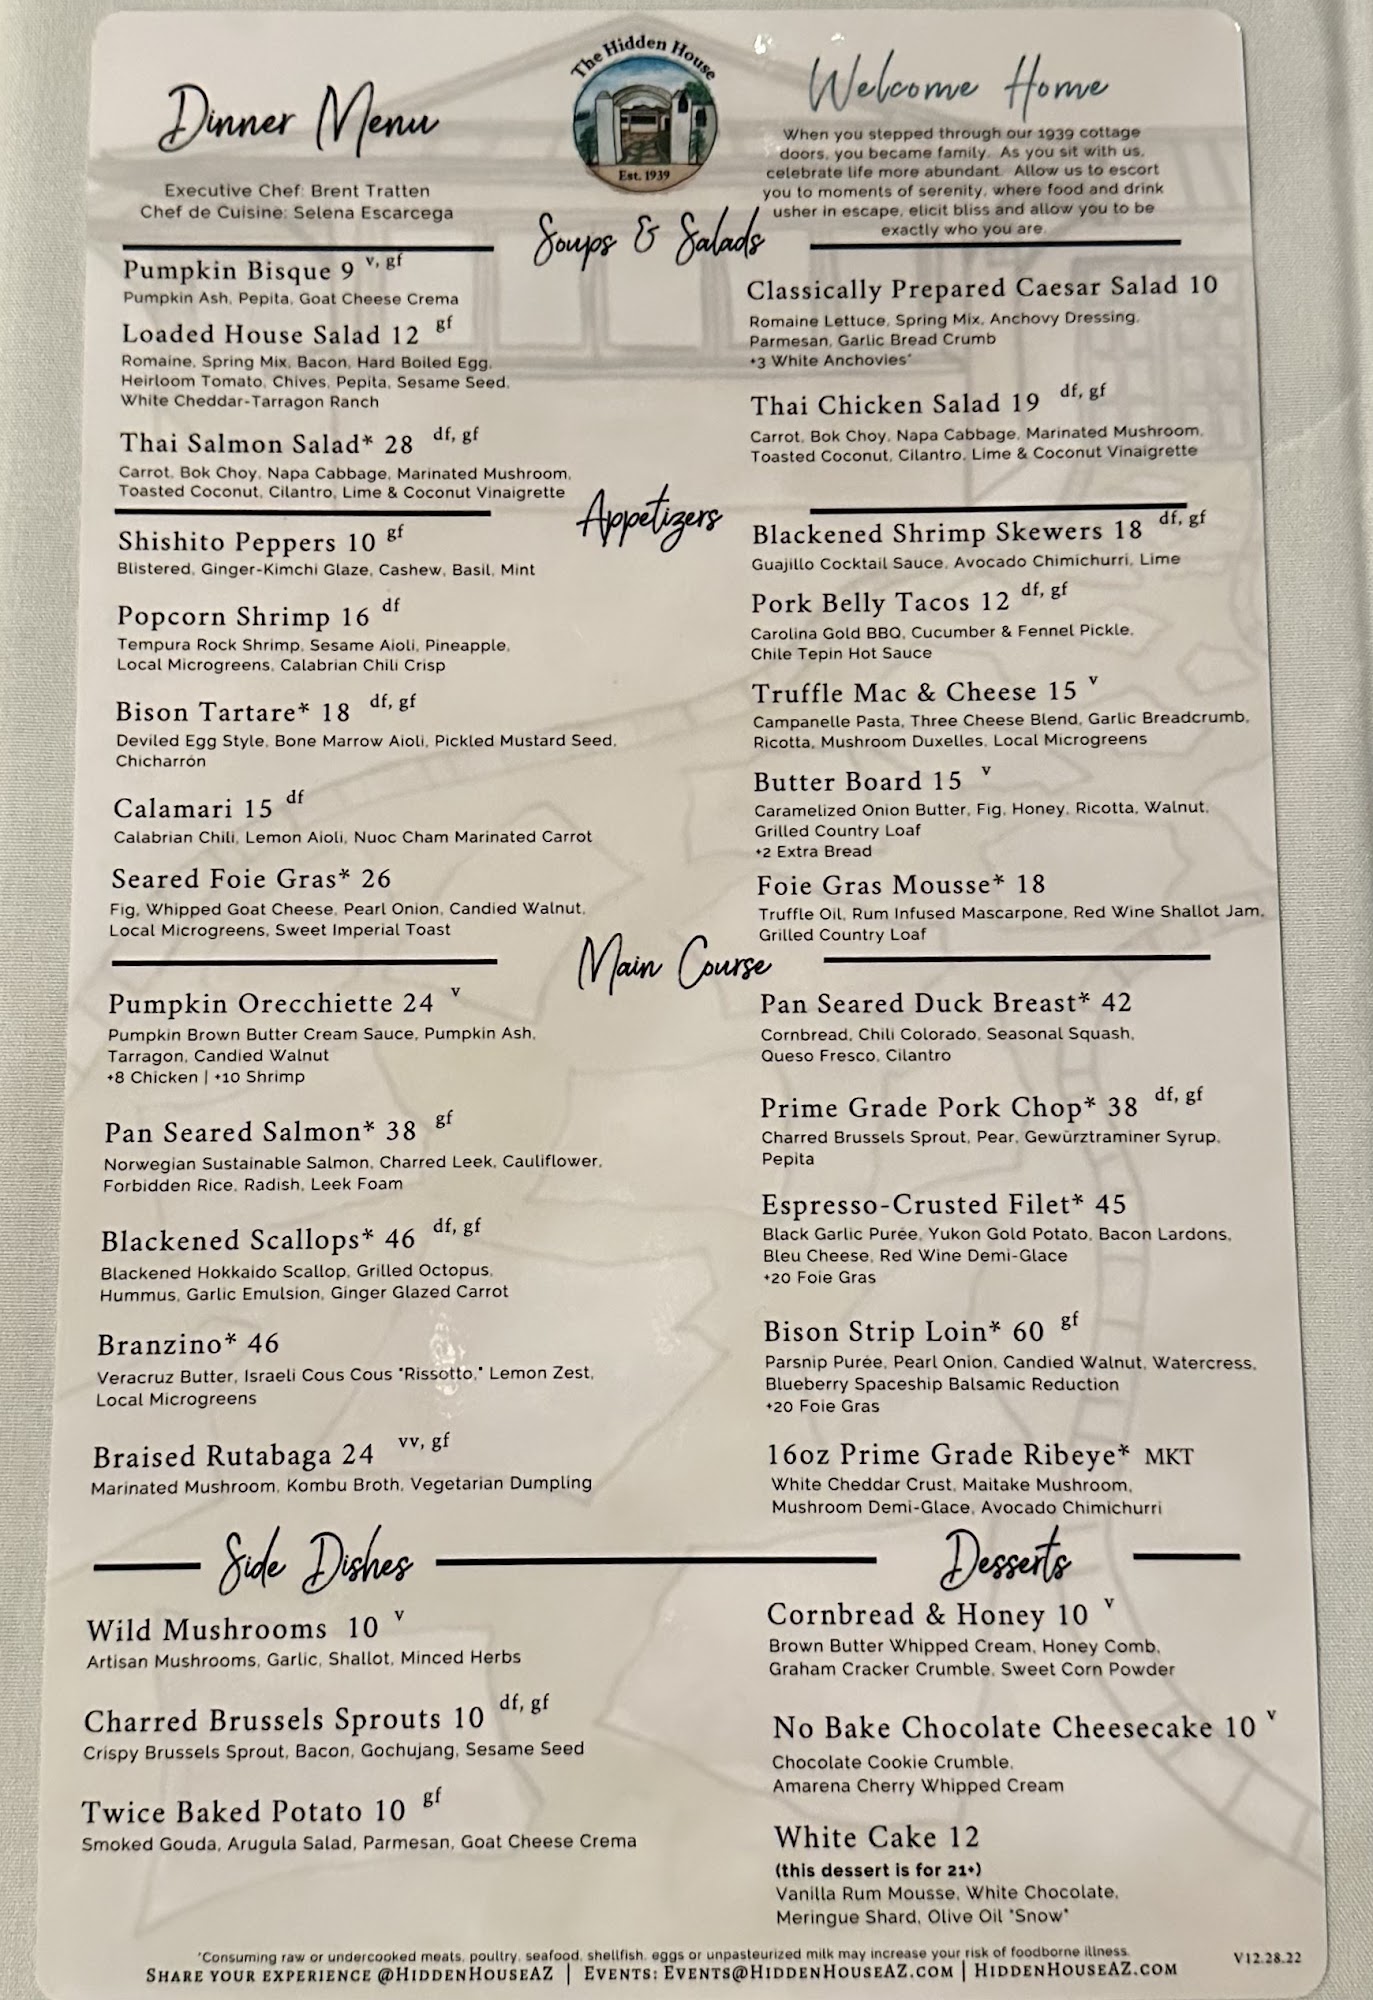 The Hidden House
Est. 1939
Dinner Menu
Executive Chef: Brent Tratten
Chef de Cuisine: Selena Escarcega
Welcome Home
When you stepped through our 1939 cottage
doors, you became family. As you sit with us,
celebrate life more abundant. Allow us to escort
you to moments of serenity, where food and drink
usher in escape, elicit bliss and allow you to be
exactly who you are.
Soups & Salads
Pumpkin Bisque 9 v, gf
Pumpkin Ash, Pepita, Goat Cheese Crema
Loaded House Salad 12 gf
Romaine, Spring Mix, Bacon, Hard Boiled Egg,
Heirloom Tomato, Chives, Pepita, Sesame Seed,
White Cheddar-Tarragon Ranch
Thai Salmon Salad* 28 df, gf
Carrot, Bok Choy, Napa Cabbage, Marinated Mushroom,
Toasted Coconut, Cilantro, Lime & Coconut Vinaigrette
Classically Prepared Caesar Salad 10
Romaine Lettuce, Spring Mix, Anchovy Dressing,
Parmesan, Garlic Bread Crumb
+3 White Anchovies*
Thai Chicken Salad 19 df, gf
Carrot, Bok Choy, Napa Cabbage, Marinated Mushroom,
Toasted Coconut, Cilantro, Lime & Coconut Vinaigrette
Appetizers
Shishito Peppers 10 gf
Blistered, Ginger-Kimchi Glaze, Cashew, Basil, Mint
Popcorn Shrimp 16 df
Tempura Rock Shrimp, Sesame Aioli, Pineapple,
Local Microgreens, Calabrian Chili Crisp
Bison Tartare* 18 df, gf
Deviled Egg Style, Bone Marrow Aioli, Pickled Mustard Seed,
Chicharrón
Calamari 15 df
Calabrian Chili, Lemon Aioli, Nuoc Cham Marinated Carrot
Seared Foie Gras* 26
Fig, Whipped Goat Cheese, Pearl Onion, Candied Walnut,
Local Microgreens, Sweet Imperial Toast
Blackened Shrimp Skewers 18 df, gf
Guajillo Cocktail Sauce, Avocado Chimichurri, Lime
Pork Belly Tacos 12 df, gf
Carolina Gold BBQ, Cucumber & Fennel Pickle,
Chile Tepin Hot Sauce
Truffle Mac & Cheese 15 v
Campanelle Pasta, Three Cheese Blend, Garlic Breadcrumb,
Ricotta, Mushroom Duxelles, Local Microgreens
Butter Board 15 v
Caramelized Onion Butter, Fig, Honey, Ricotta, Walnut,
Grilled Country Loaf
+2 Extra Bread
Foie Gras Mousse* 18
Truffle Oil, Rum Infused Mascarpone, Red Wine Shallot Jam,
Grilled Country Loaf
Main Course
Pumpkin Orecchiette 24 v
Pumpkin Brown Butter Cream Sauce, Pumpkin Ash,
Tarragon, Candied Walnut
+8 Chicken | +10 Shrimp
Pan Seared Salmon* 38 gf
Norwegian Sustainable Salmon, Charred Leek, Cauliflower,
Forbidden Rice, Radish, Leek Foam
Blackened Scallops* 46 df, gf
Blackened Hokkaido Scallop, Grilled Octopus,
Hummus, Garlic Emulsion, Ginger Glazed Carrot
Branzino* 46
Veracruz Butter, Israeli Cous Cous "Rissotto," Lemon Zest,
Local Microgreens
Braised Rutabaga 24 vv, gf
Marinated Mushroom, Kombu Broth, Vegetarian Dumpling
Pan Seared Duck Breast* 42
Cornbread, Chili Colorado, Seasonal Squash,
Queso Fresco, Cilantro
Prime Grade Pork Chop* 38 df, gf
Charred Brussels Sprout, Pear, Gewürztraminer Syrup,
Pepita
Espresso-Crusted Filet* 45
Black Garlic Purée, Yukon Gold Potato, Bacon Lardons,
Bleu Cheese, Red Wine Demi-Glace
+20 Foie Gras
Bison Strip Loin* 60 gf
Parsnip Purée, Pearl Onion, Candied Walnut, Watercress,
Blueberry Spaceship Balsamic Reduction
+20 Foie Gras
16oz Prime Grade Ribeye* MKT
White Cheddar Crust, Maitake Mushroom,
Mushroom Demi-Glace, Avocado Chimichurri
Side Dishes
Wild Mushrooms 10 v
Artisan Mushrooms, Garlic, Shallot, Minced Herbs
Charred Brussels Sprouts 10 df, gf
Crispy Brussels Sprout, Bacon, Gochujang, Sesame Seed
Twice Baked Potato 10 gf
Smoked Gouda, Arugula Salad, Parmesan, Goat Cheese Crema
Desserts
Cornbread & Honey 10 v
Brown Butter Whipped Cream, Honey Comb,
Graham Cracker Crumble, Sweet Corn Powder
No Bake Chocolate Cheesecake 10 v
Chocolate Cookie Crumble,
Amarena Cherry Whipped Cream
White Cake 12
(this dessert is for 21+)
Vanilla Rum Mousse, White Chocolate,
Meringue Shard, Olive Oil "Snow"
*Consuming raw or undercooked meats, poultry, seafood, shellfish, eggs or unpasteurized milk may increase your risk of foodborne illness.
V12.28.22
SHARE YOUR EXPERIENCE @HIDDENHOUSEAZ | EVENTS: EVENTS@HIDDENHOUSEAZ.COM | HIDDENHOUSEAZ.COM